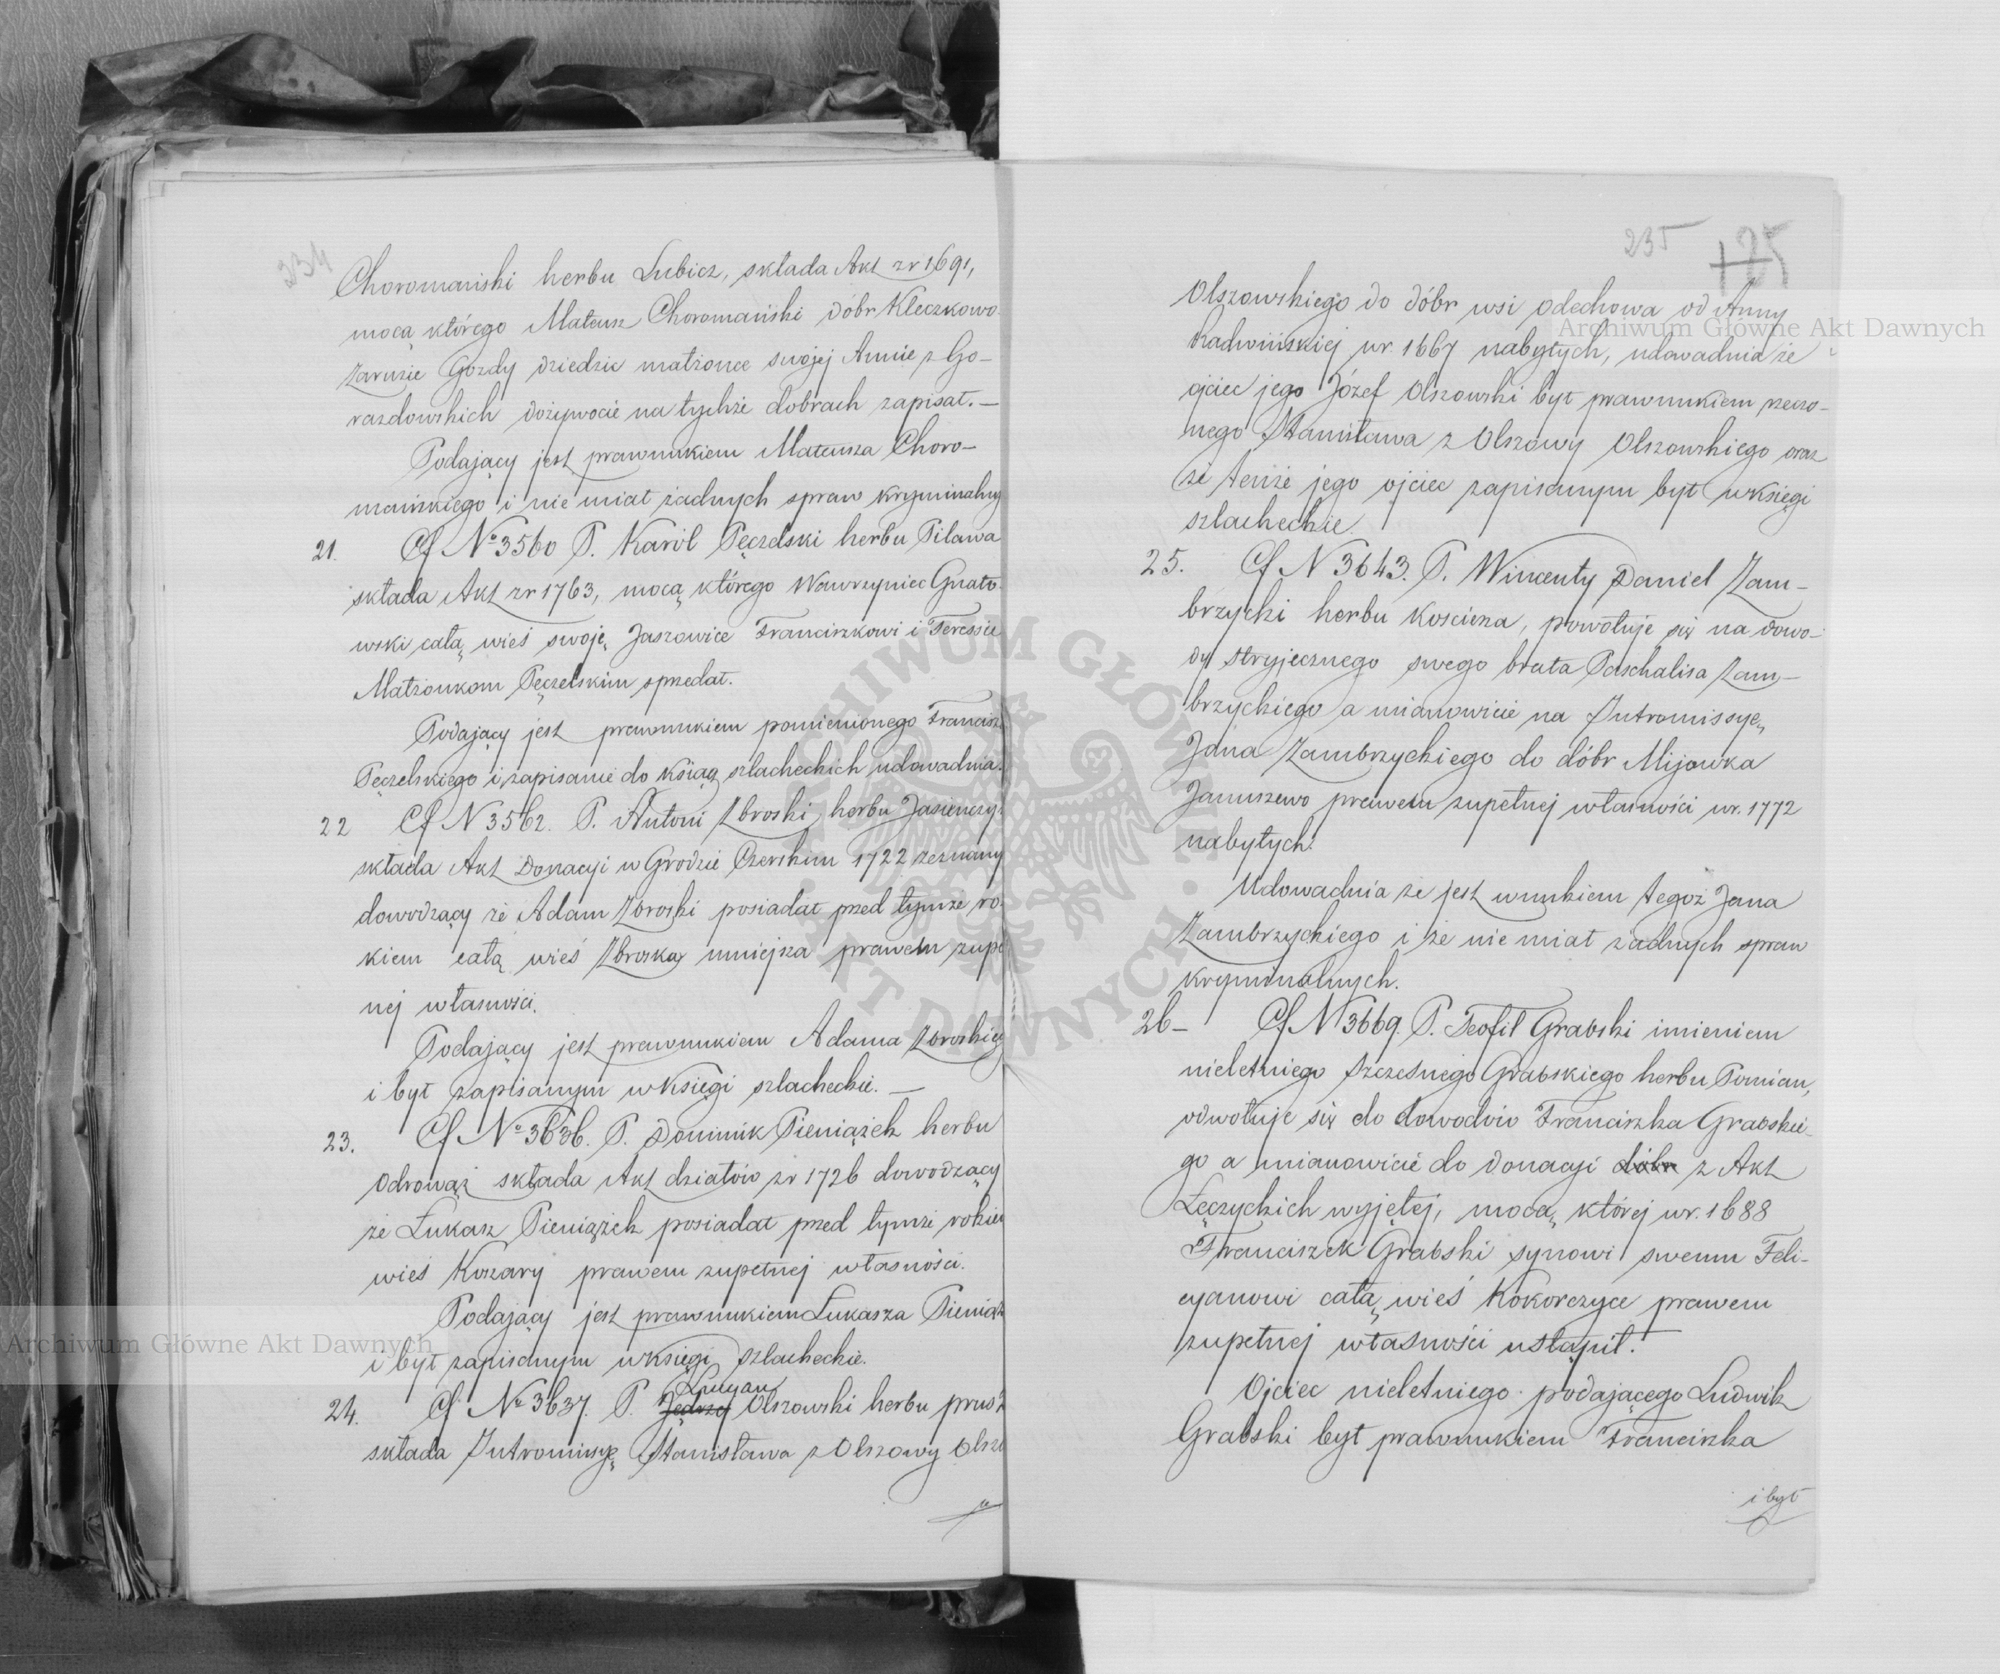 234
Choromański herbu Lubicz, składa Akt zr 1691,
mocą którego Mateusz Choromański dóbr Kleczkowo
Zaruzie Gozdy dziedzic małżonce swojej Annie z Go-
razdowskich dożywocie na tychże dobrach zapisał. —
Podający jest prawnukiem Mateusza Choro-
mańskiego i nie miał żadnych spraw kryminalny
21. Cf No 3560 P. Karól Pęczelski herbu Pilawa
składa Akt zr 1763, mocą którego Wawrzyniec Gnato-
wski całą wieś swoję Jaszowice Franciszkowi i Teressie
Małżonkom Pęczelskim sprzedał.
Podający jest prawnukiem pomienionego Francisz
Pęczelskiego i zapisanie do ksiąg szlacheckich udowadnia.
22 Cf N 3562. P. Antoni Zbroski herbu Jasieńczy
składa Akt Donacyi w Grodzie Czerskim 1722 zeznany
dowodzący że Adam Zbroski posiadał przed tymże ro-
kiem całą wieś Zbroszka mniejsza prawem zupeł
nej własności.
Podający jest prawnukiem Adama Zbroskieg
i był zapisanym w księgi szlacheckie. —
23. Cf No 3636. P. Dominik Pieniążek herbu
Odrowąż składa Akt działów zr 1726 dowodzący
że Łukasz Pieniążek posiadał przed tymże rokiem
wieś Kozary prawem zupełnej własności.
Podający jest prawnukiem Łukasza Pieniąż
i był zapisanym w księgi szlacheckie.
Lucyan
24. Cf No 3637. P. Jędrzej Olszowski herbu prus
składa Intromissyę Stanisława z Olszowy Olszo
235 125
Olszowskiego do dóbr wsi Odechowa od Anny
Radwińskiej w r. 1667 nabytych, udowadnia że
ojciec jego Józef Olszowski był prawnukiem rzeczo-
nego Stanisława z Olszowy Olszowskiego oraz
że tenże jego ojciec zapisanym był w księgi
szlacheckie
25. Cf N 3643. P. Wincenty Daniel Zam-
brzycki herbu Kościesza, powołuje się na dowo-
dy stryjecznego swego brata Paschalisa Zam-
brzyckiego a mianowicie na Intromissyę
Jana Zambrzyckiego do dóbr Mijowka
Januszewo prawem zupełnej własności w r. 1772
nabytych.
Udowadnia że jest wnukiem tegoż Jana
Zambrzyckiego i że nie miał żadnych spraw
kryminalnych.
26 — Cf N 3669. P. Teofil Grabski imieniem
nieletniego Szczesnego Grabskiego herbu Pomian,
odwołuje się do dowodów Franciszka Grabskie-
go a mianowicie do donacyi dóbr z Akt
Łęczyckich wyjętej, mocą której w r. 1688
Franciszek Grabski synowi swemu Feli-
cyanowi całą wieś Kokorczyce prawem
zupełnej własności ustąpił.
Ojciec nieletniego podającego Ludwik
Grabski był prawnukiem Franciszka
i był
Archiwum Główne Akt Dawnych
Archiwum Główne Akt Dawnych
ARCHIWUM GŁÓWNE AKT DAWNYCH